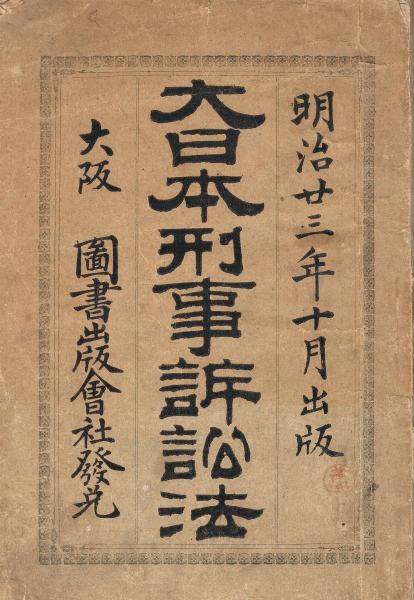 明治廿三年十月出版
大日本刑事訴訟法
大阪 圖書出版會社發兌